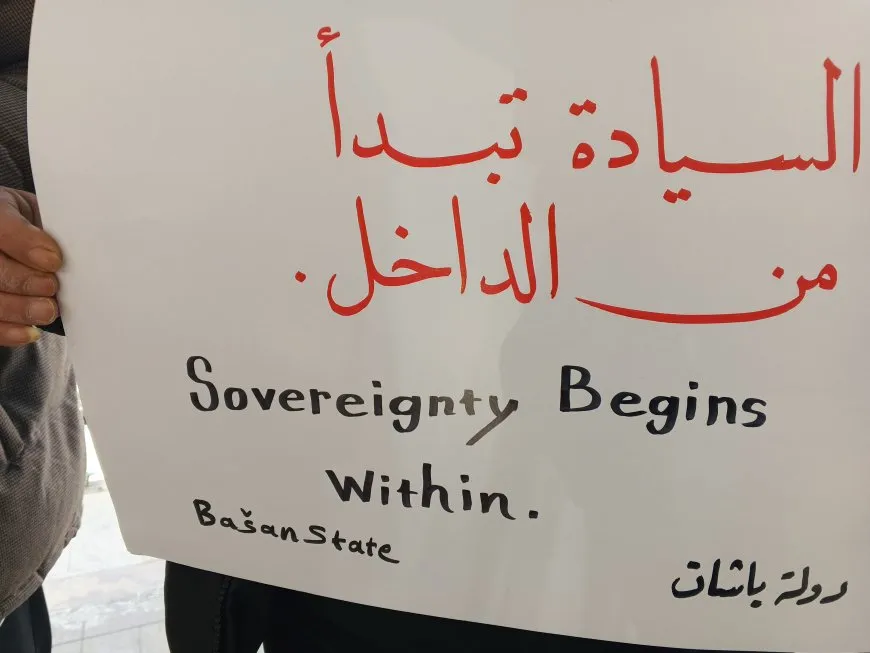 السيادة تبدأ
من الداخل.
Sovereignty Begins
Within.
Bašan State
دولة باشان